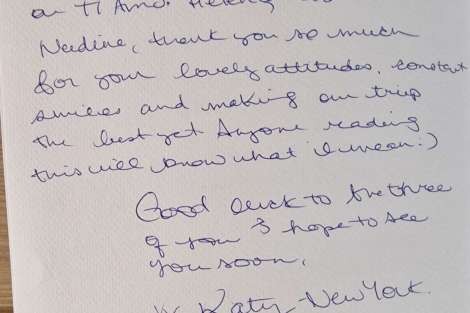 on Ti Amo. Helene,
Nadine, thank you so much
for your lovely attitudes, constant
smiles and making our trip
the best yet Anyone reading
this will know what I mean :)
Good luck to the three
of you & hope to see
you soon.
Katy - New York.